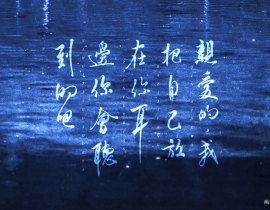 親愛的我
把自己放
在你耳
邊你會聽
到的吧